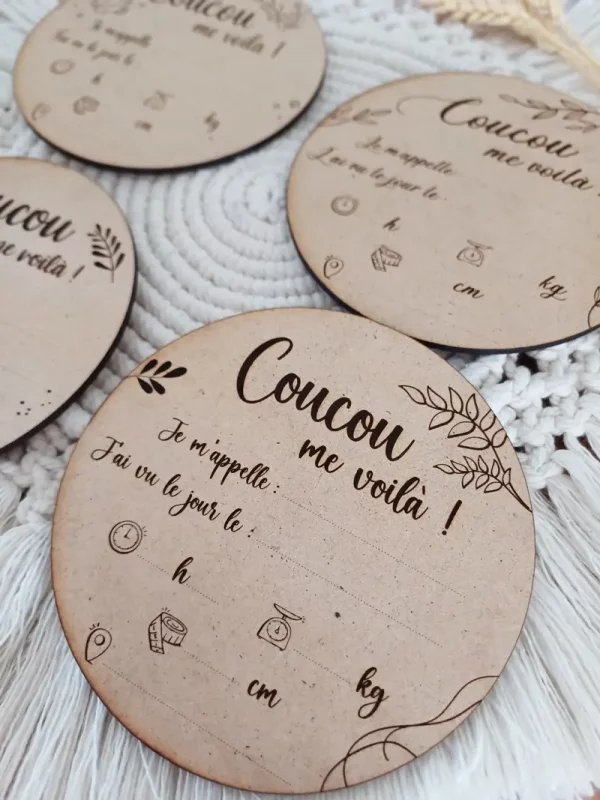 Coucou
me voilà !
Je m'appelle
J'ai vu le jour le :
h
cm
kg
Coucou
me voilà !
Je m'appelle
J'ai vu le jour le :
h
cm
kg
ucou
me voilà !
Coucou
me voilà !
Je m'appelle :
J'ai vu le jour le :
h
cm
kg